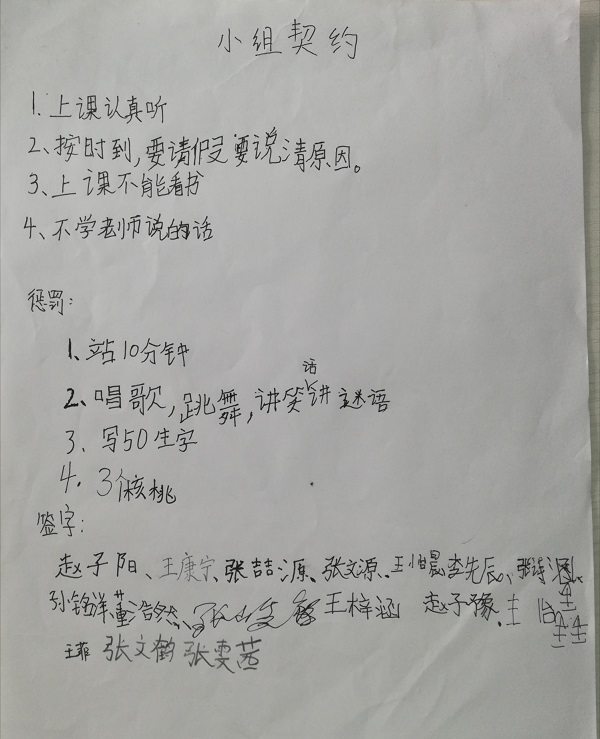 小组契约
1.上课认真听
2、按时到,要请假要说清原因。
3、上课不能看书
4、不学老师说的话
惩罚:
1、站10分钟
2、唱歌,跳舞,讲笑话讲谜语
3、写50生字
4、3个核桃
签字:
赵子阳、王康宁、张喆源、张文源、王怡晨李先辰、张诗
孙铭洋董浩然、王梓涵 赵子豫、王怡
王菲 张文鹤 张雯茜